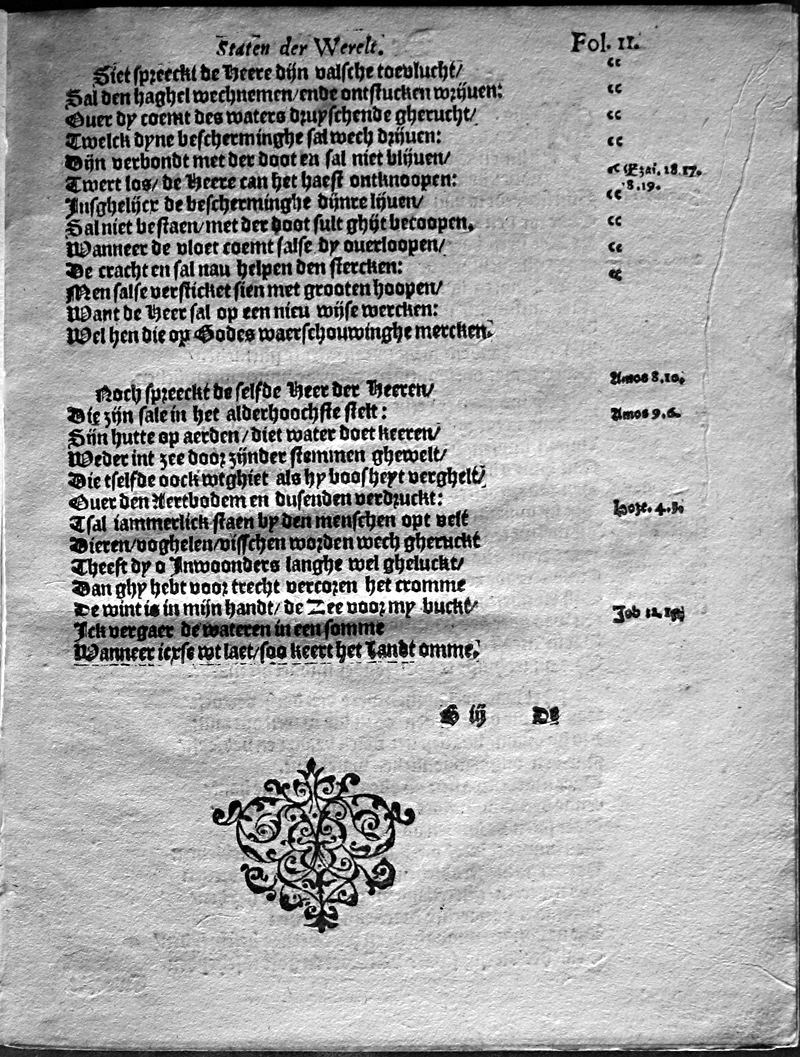 Staten der Werelt. Fol. 11.
Siet spreeckt de Heere dijn valsche toevlucht/ “
Sal den haghel wechnemen/ende ontstucken wrijuen: “
Ouer dy coemt des waters druyschende gherucht/ “
Twelck dyne bescherminghe sal wech drijuen: “
Dijn verbondt met der doot en sal niet blijuen/ “ Ezai. 18.17.
Twert los/ de Heere can het haest ontknoopen: 8.19. “
Insghelijcx de bescherminghe dijnre lijuen/
Sal niet bestaen/met der doot sult ghijt becoopen. “
Wanneer de vloet coemt salse dy ouerloopen/ “
De cracht en sal nau helpen den stercken: “
Men salse versticket sien met grooten hoopen/
Want de Heer sal op een nieu wijse wercken:
Wel hen die op Godes waerschouwinghe mercken.
Noch spreeckt de selfde Heer der Heeren/ Amos 8.10.
Die zijn sale in het alderhoochste stelt: Amos 9.6.
Sijn hutte op aerden/diet water doet keeren/
Weder int zee door zijnder stemmen ghewelt/
Die tselfde oock wtghiet als hy boosheyt verghelt/
Ouer den Aertbodem en dusenden verdruckt:
Tsal iammerlick staen by den menschen opt velt Hoze. 4.3.
Dieren/voghelen/visschen worden wech gheruckt
Theeft dy o Inwoonders langhe wel gheluckt/
Dan ghy hebt voor trecht vercoren het cromme
De wint is in mijn handt/de Zee voor my buckt/ Job 12.15.
Ick vergaer de wateren in een somme
Wanneer icxse wt laet/soo keert het Landt omme.
B iij De